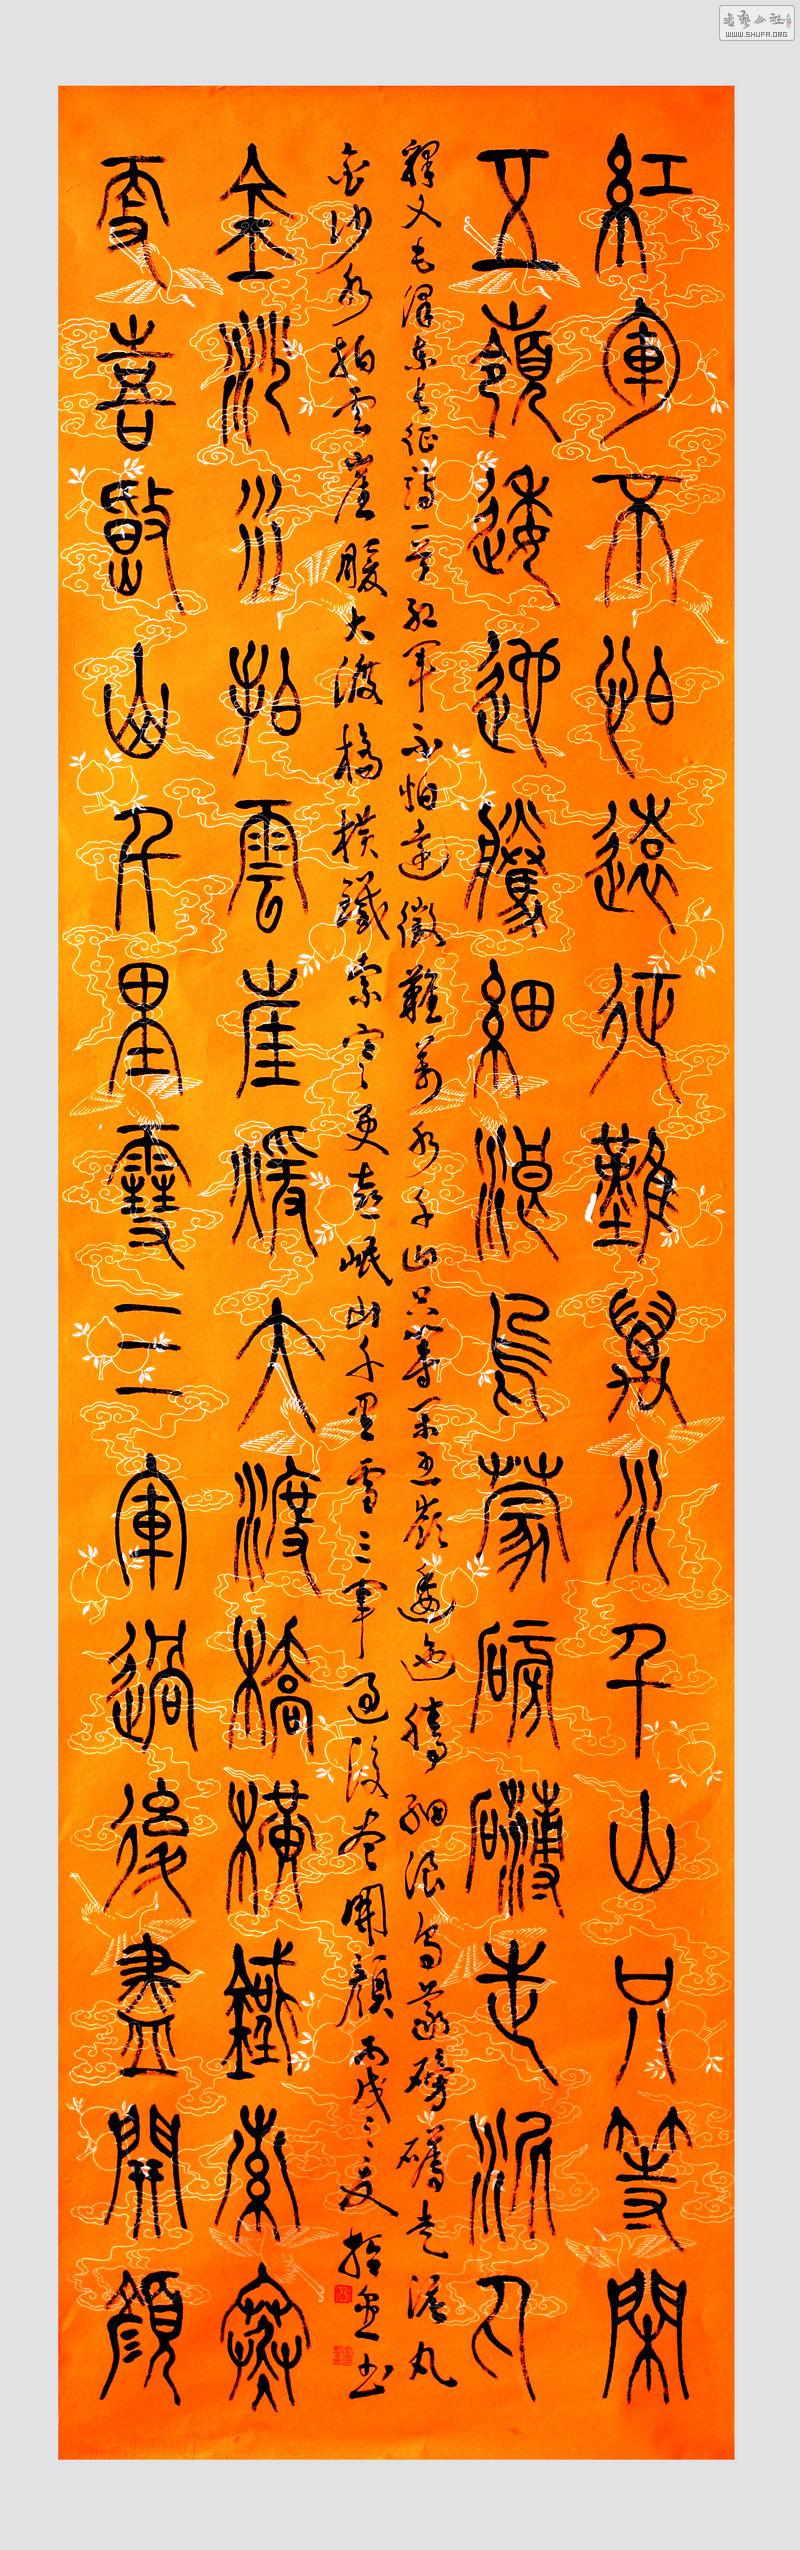 書藝公社
WWW.SHUFA.ORG
紅軍不怕遠征難萬水千山只等閑
五嶺逶迤騰細浪烏蒙磅礴走泥丸
釋文毛澤東長征詩一首紅軍不怕遠徵難萬水千山只等閑五嶺逶迤騰細浪烏蒙磅礴走泥丸
金沙水拍雲崖暖大渡橋橫鐵索寒更喜岷山千里雪三軍過後盡開顏丙戌之夏書
金沙水拍雲崖煖大渡橋橫鐵索寒
更喜岷山千里雪三軍過後盡開顏